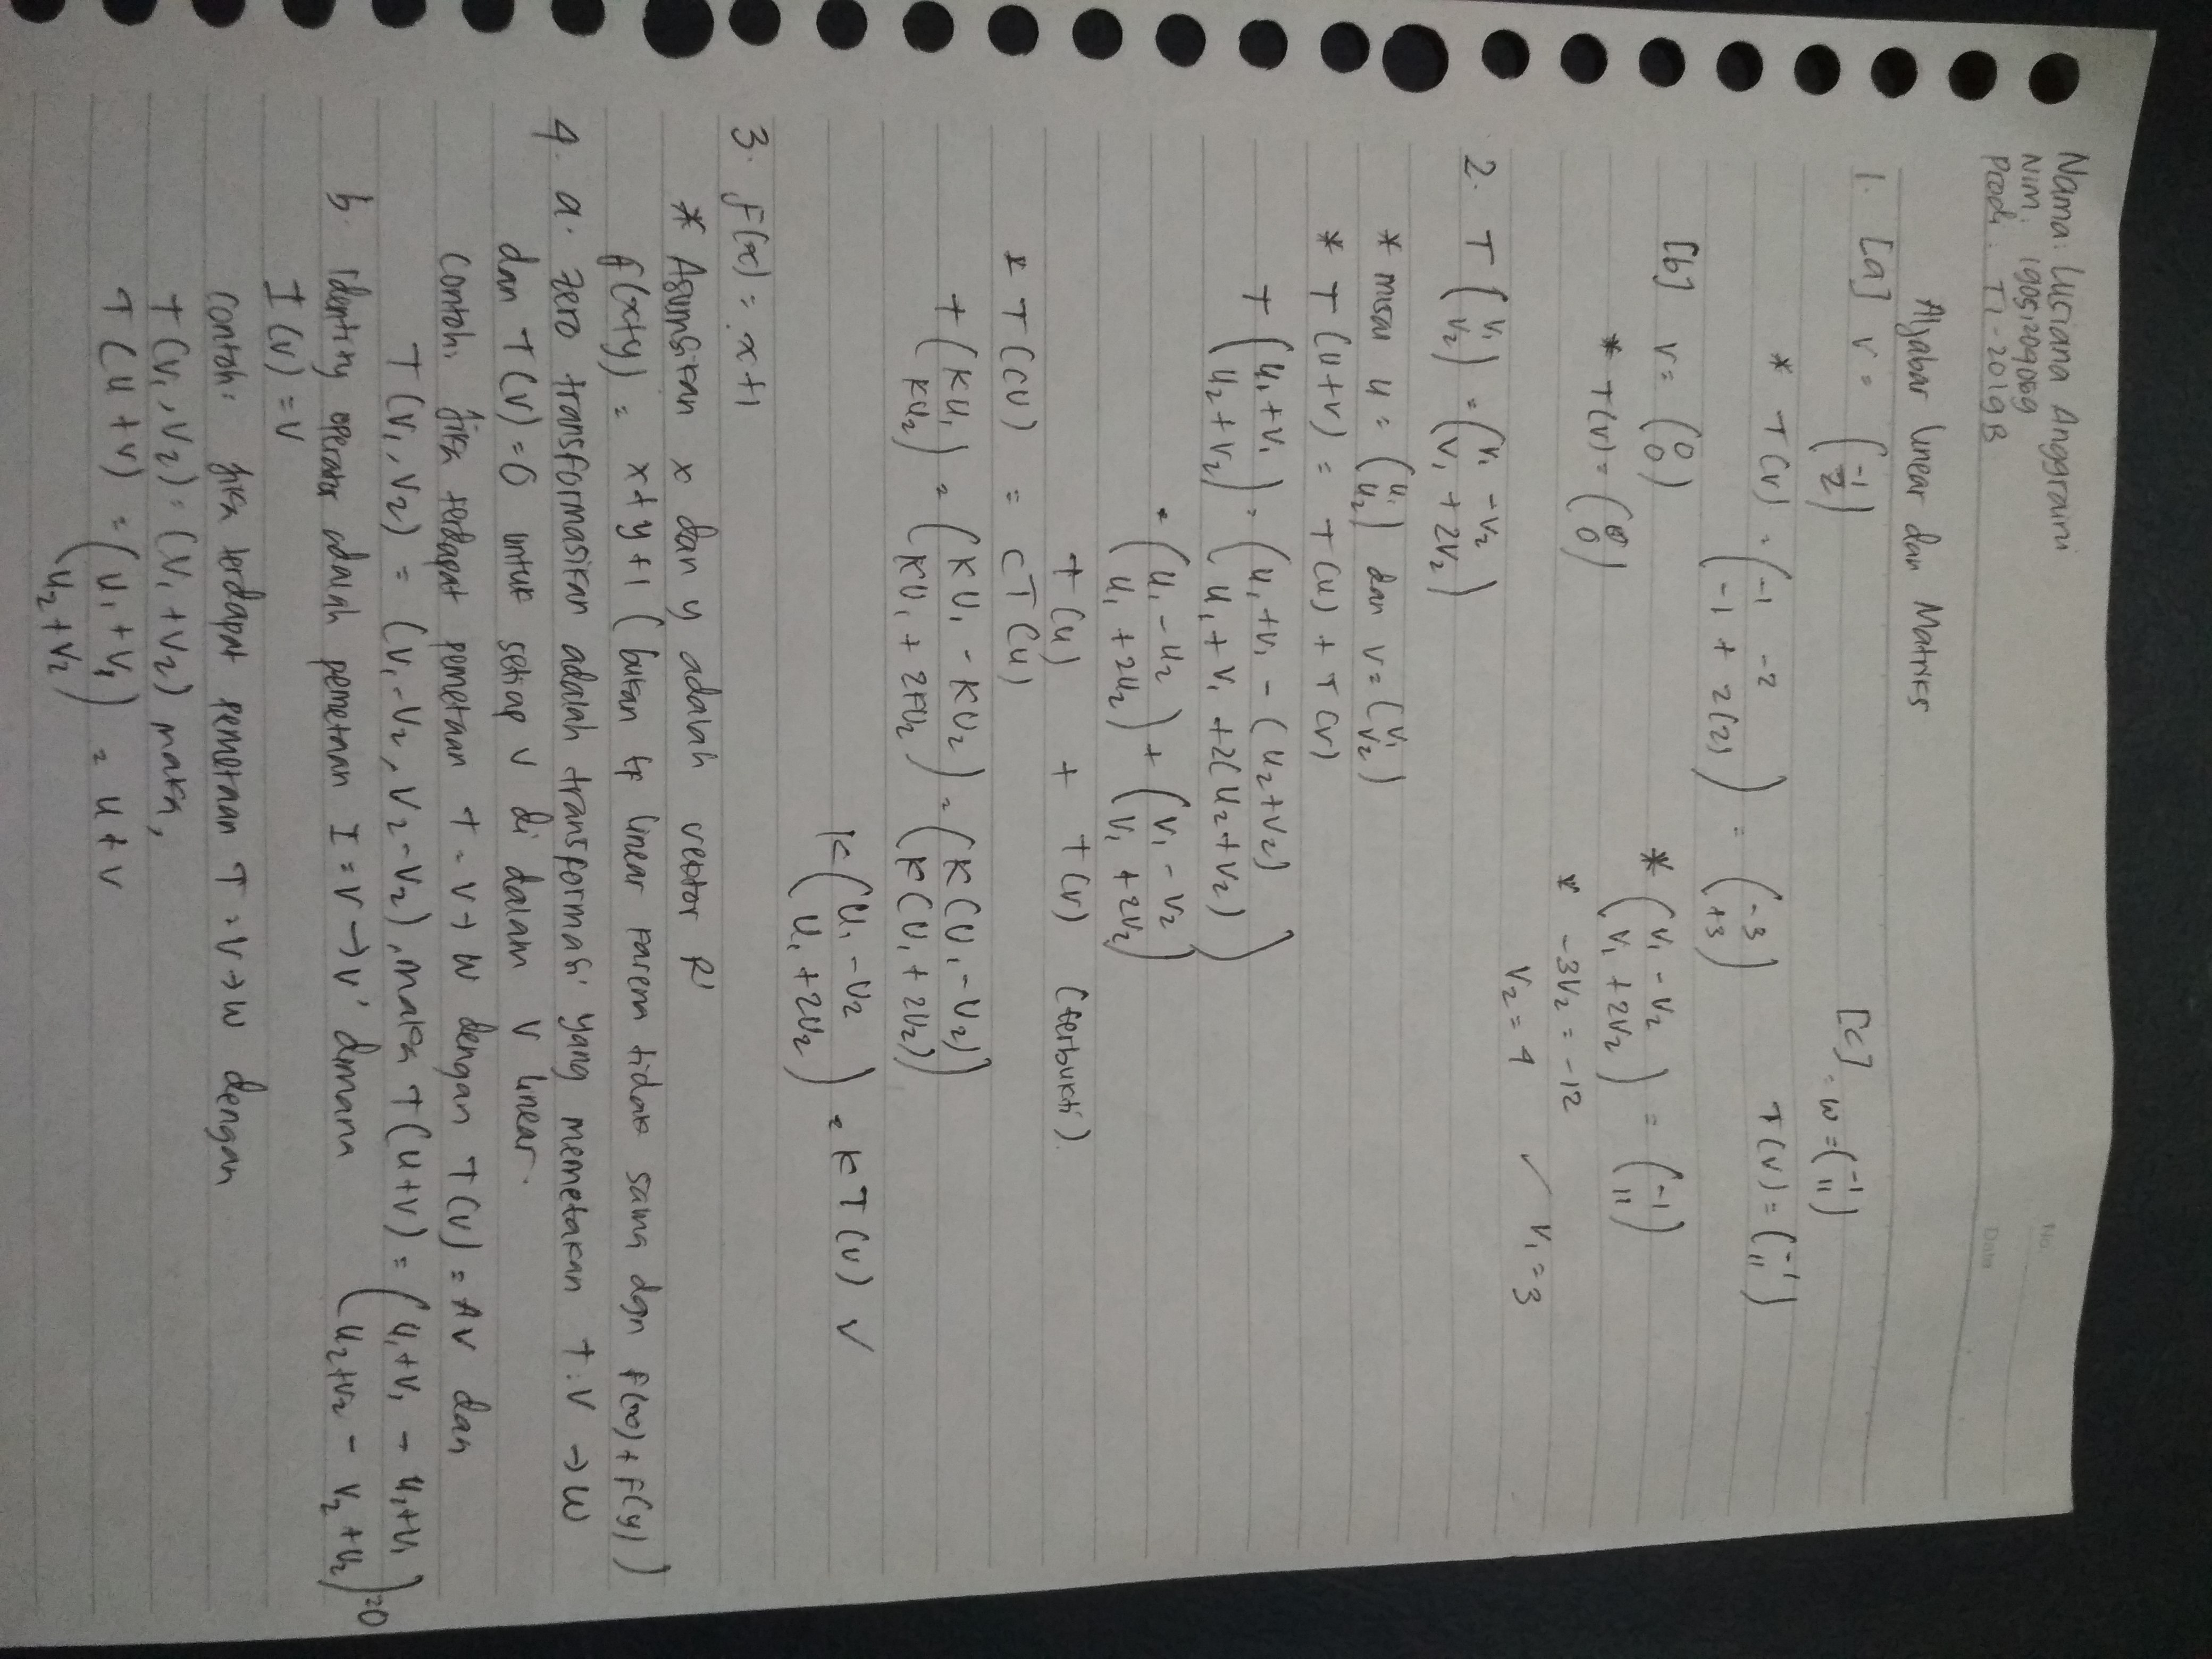 No.
Date
Nama: Luciana Anggraini
Nim:
Prodi: TI-2019B
Aljabar linear dan Matriks
1. [a] v = (-1 2)
* T(v) = (-1 -2
-1 + 2(2)) = (-3 +3)
[b] v = (0 0)
* T(v) = (0 0)
[c] w = (-1 11)
T(v) = (-1 11)
* (v1 - v2
v1 + 2v2) = (-1 11)
* -3v2 = -12
v2 = 4 ✓ v1 = 3
2. T (v1 v2) = (v1 - v2
v1 + 2v2)
* misal u = (u1 u2) dan v = (v1 v2)
* T(u+v) = T(u) + T(v)
T (u1+v1
u2+v2) = (u1+v1 - (u2+v2)
u1+v1 + 2(u2+v2))
= (u1 - u2
u1 + 2u2) + (v1 - v2
v1 + 2v2)
T(u) + T(v) (terbukti).
* T(cu) = cT(u)
T (ku1
ku2) = (ku1 - ku2
ku1 + 2ku2) = (k(u1 - u2)
k(u1 + 2u2))
k (u1 - u2
u1 + 2u2) = kT(u) ✓
3. f(x) = x+1
* Asumsikan x dan y adalah vektor R'
f(x+y) = x+y+1 (bukan tp linear karena tidak sama dgn f(x) + f(y))
4. a. Zero transformasikan adalah transformasi yang memetakan T:V → W
dan T(v) = 0 untuk setiap v di dalam V linear.
Contoh: jika terdapat pemetaan T = V → W dengan T(v) = Av dan
T(v1, v2) = (v1-v2, v2-v2), maka T(u+v) = (u1+v1 - u1+v1
u2+v2 - v2+u2) = 0
b. Identity operator adalah pemetaan I = V → V' dimana
I(v) = v
Contoh: jika terdapat pemetaan T = V → W dengan
T(v1, v2) = (v1 + v2) maka,
T(u+v) = (u1+v1
u2+v2) = u+v